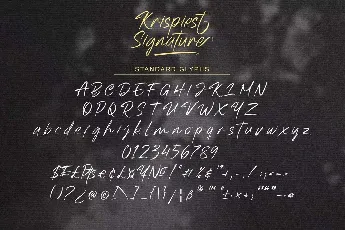 Krispiest
Signature
STANDARD GLYPHS
ABCDEFGHIJKLMN
OPQRSTUVWXYZ
abcdefghijklmnopqrstuvwxyz
0123456789